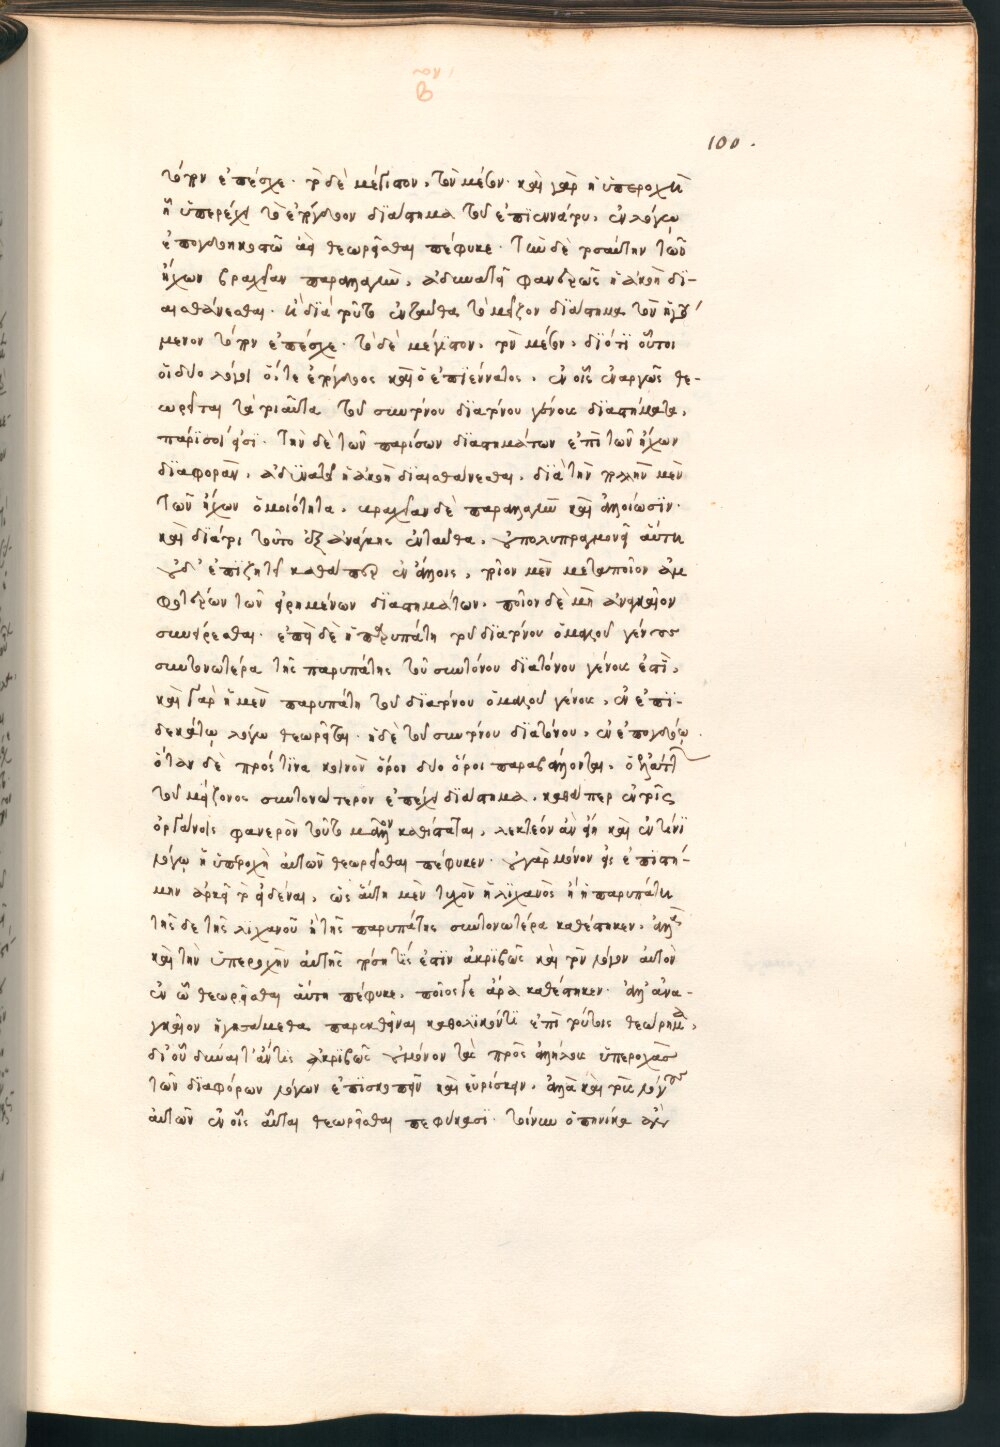 100.
τόπον ἐπέσχε· τὸ δὲ μέγιστον, τὸν μέσον· καὶ γὰρ ἡ ὑπεροχὴ
ἣ ὑπερέχει τὸ ἐπόγδοον διάστημα τοῦ ἐπιεννάτου, ἐν λόγῳ
θεωρεῖσθαι πέφυκε· τὴν δὲ τοσαύτην τῶν
ἤχων βραχεῖαν παραλλαγὴν, ἀδυνατεῖ φανερῶς ἡ ἀκοὴ δι-
αισθάνεσθαι· διὰ τοῦτο ἐνταῦθα τὸ μεῖζον διάστημα τὸν ἡγού-
μενον τόπον ἐπέσχε· τὸ δὲ μέγιστον, τὸν μέσον, διότι οὗτοι
οἱ δύο λόγοι ὅ,τε ἐπόγδοος καὶ ὁ ἐπιέννατος, ἐν οἷς ἐναργῶς θε-
ωρεῖται τὰ τοιαῦτα τοῦ συντόνου διατόνου γένους διαστήματα,
πάρισοί εἰσι· τὴν δὲ τῶν παρίσων διαστημάτων ἐπὶ τῶν ἤχων
διαφορὰν, ἀδυνατεῖ ἡ ἀκοὴ διαισθάνεσθαι, διὰ τὴν πολλὴν μὲν
τῶν ἤχων ὁμοιότητα, βραχεῖαν δὲ παραλλαγὴν καὶ ἀλλοίωσιν·
καὶ διάτοι τοῦτο ἐξανάγκης ἐνταῦθα, οὐ πολυπραγμονεῖ αὕτη
οὐδ' ἐπιζητεῖ καθάπερ ἐν ἄλλοις, ποῖον μὲν μεταποῖον ἀμ
φοτέρων τῶν εἰρημένων διαστημάτων, ποῖον δὲ μὴ ἀναγκαῖον
συναίρεσθαι· ἐπεὶ δὲ ἡ παρυπάτη τοῦ διατόνου ὁμαλοῦ γένους
συντονωτέρα τῆς παρυπάτης τοῦ συντόνου διατόνου γένους ἐστὶ,
καὶ γὰρ ἡ μὲν παρυπάτη τοῦ διατόνου ὁμαλοῦ γένους, ἐν ἐπι-
δεκάτῳ λόγῳ θεωρεῖται· ἡ δὲ τοῦ συντόνου διατόνου, ἐν ἐπογδόῳ.
ὅταν δὲ πρός τινα κοινὸν ὅρον δύο ὅροι παραβάλλονται, ὁ
τοῦ μείζονος συντονώτερον ἐπέχει διάστημα, καθάπερ ἐν τοῖς
ὀργάνοις φανερὸν τοῦτο μᾶλλον καθίσταται, λεκτέον ἂν εἴη καὶ ἐν τίνι
λόγῳ ἡ ὑπεροχὴ αὐτῶν θεωρεῖσθαι πέφυκεν· οὐ γὰρ μόνον εἰς ἐπιστή-
μην ἀρκεῖ τὸ εἰδέναι, ὡς αὕτη μὲν τυχὸν ἡ λιχανὸς ἢ ἡ παρυπάτη
τῆσδε τῆς λιχανοῦ ἢ τῆς παρυπάτης συντονωτέρα καθέστηκεν, ἀλλὰ
καὶ τὴν ὑπεροχὴν αὐτῆς πόση τίς ἐστὶν ἀκριβῶς καὶ τὸν λόγον αὐτὸν
ἐν ᾧ θεωρεῖσθαι αὕτη πέφυκε, ποῖός τε ἄρα καθέστηκεν· ἀλλ' ἀνα-
γκαῖον ἡγησάμεθα παρεκθεῖναι καθολικόν τι ἐπὶ τούτοις θεώρημα,
δι' οὗ δύναιτ' ἄν τις ἀκριβῶς οὐ μόνον τὰς πρὸς ἀλλήλους ὑπεροχὰς
τῶν διαφόρων λόγων ἐπισκοπεῖν καὶ εὑρίσκειν, ἀλλὰ καὶ τοὺς λόγους
αὐτῶν ἐν οἷς αὗται θεωρεῖσθαι πεφύκασι· τοίνυν ὁπηνίκα